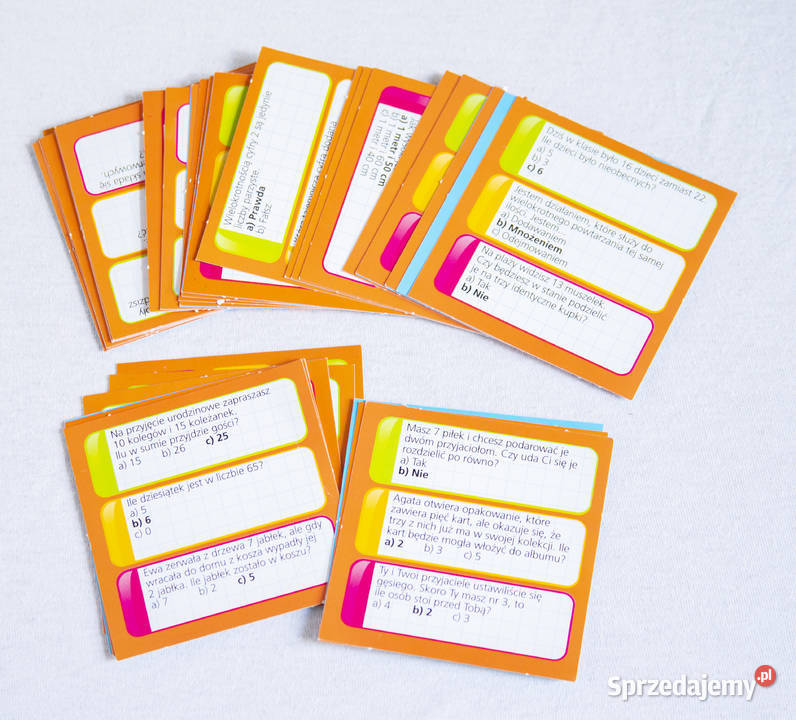 składa się
wowych
?
Wielokrotnością cyfry 2 są jedynie
liczby parzyste.
a) Prawda
b) Fałsz
a) 1 metr i 50 cm
b) 1 metr i 60 cm
c) 1 metr i 40 cm
Dziś w klasie było 16 dzieci zamiast 22.
Ile dzieci było nieobecnych?
a) 5
b) 3
c) 6
Jestem działaniem, które służy do
wielokrotnego powtarzania tej samej
ilości. Jestem...
a) Dodawaniem
b) Mnożeniem
c) Odejmowaniem
Na plaży widzisz 13 muszelek.
Czy będziesz w stanie podzielić
je na trzy identyczne kupki?
a) Tak
b) Nie
Na przyjęcie urodzinowe zapraszasz
10 kolegów i 15 koleżanek.
Ilu w sumie przyjdzie gości?
a) 15 b) 26 c) 25
Ile dziesiątek jest w liczbie 65?
a) 5
b) 6
c) 0
Ewa zerwała z drzewa 7 jabłek, ale gdy
wracała do domu z kosza wypadły jej
2 jabłka. Ile jabłek zostało w koszu?
a) 7 b) 2 c) 5
Masz 7 piłek i chcesz podarować je
dwóm przyjaciołom. Czy uda Ci się je
rozdzielić po równo?
a) Tak
b) Nie
Agata otwiera opakowanie, które
zawiera pięć kart, ale okazuje się, że
trzy z nich już ma w swojej kolekcji. Ile
kart będzie mogła włożyć do albumu?
a) 2 b) 3 c) 5
Ty i Twoi przyjaciele ustawiliście się
gęsiego. Skoro Ty masz nr 3, to
ile osób stoi przed Tobą?
a) 4 b) 2 c) 3
Sprzedajemy.pl